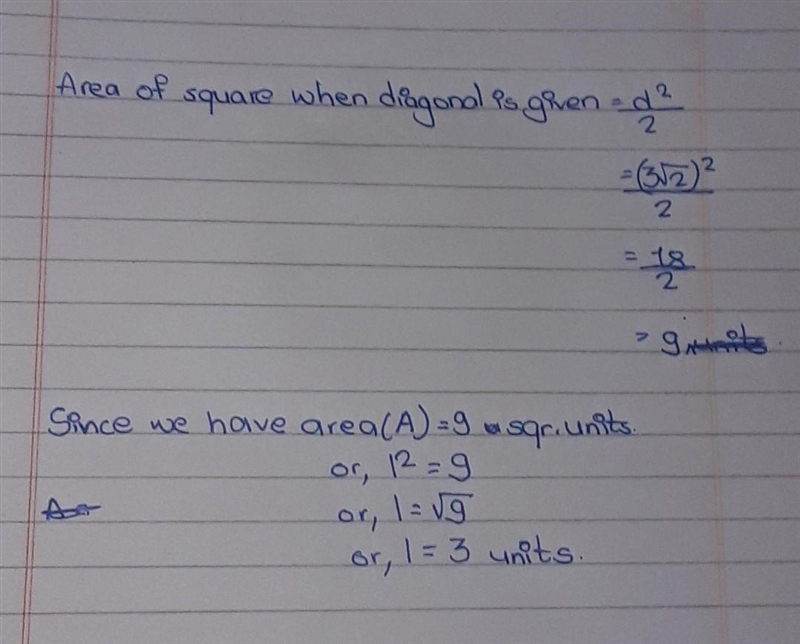 Area of square when diagonal is given = d²/2
= (3√2)²/2
= 18/2
= 9 units.
Since we have area(A) = 9 sqr. units.
or, l² = 9
or, l = √9
or, l = 3 units.